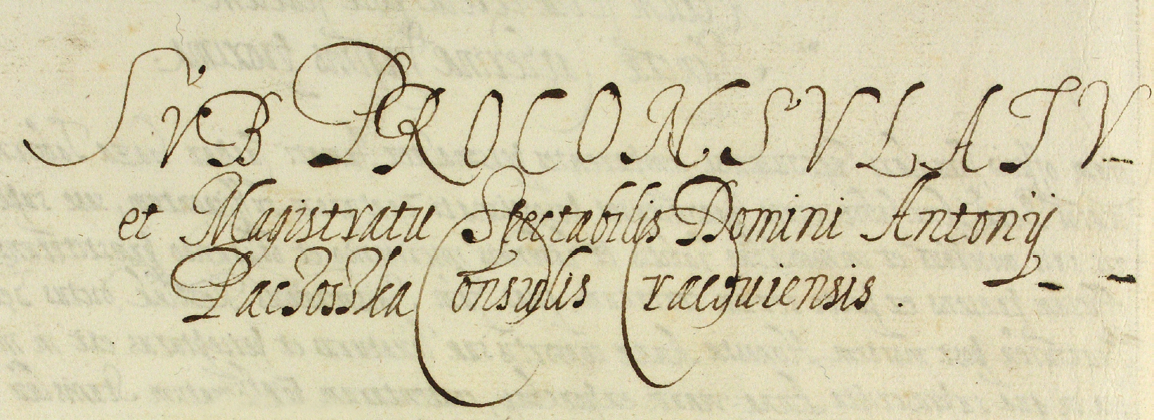 SVB PROCONSVLATV
et Magistratu Spectabilis Domini Antonij
Paczoszka Consulis Cracouiensis .